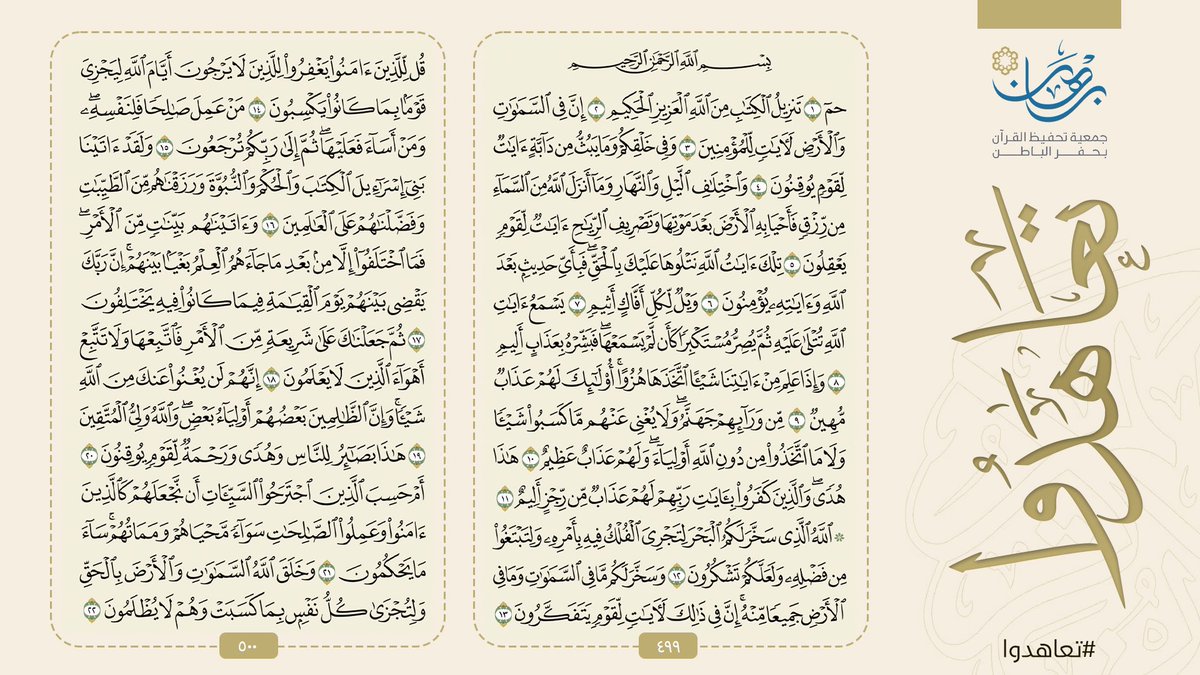 برهان
جمعية تحفيظ القرآن
بحفر الباطن
تعاهدوا
#تعاهدوا
بِسْمِ ٱللَّهِ ٱلرَّحْمَٰنِ ٱلرَّحِيمِ
حمٓ ١ تَنزِيلُ ٱلْكِتَٰبِ مِنَ ٱللَّهِ ٱلْعَزِيزِ ٱلْحَكِيمِ ٢ إِنَّ فِى ٱلسَّمَٰوَٰتِ
وَٱلْأَرْضِ لَءَايَٰتٍ لِّلْمُؤْمِنِينَ ٣ وَفِى خَلْقِكُمْ وَمَا يَبُثُّ مِن دَآبَّةٍ ءَايَٰتٌ
لِّقَوْمٍ يُوقِنُونَ ٤ وَٱخْتِلَٰفِ ٱلَّيْلِ وَٱلنَّهَارِ وَمَآ أَنزَلَ ٱللَّهُ مِنَ ٱلسَّمَآءِ
مِن رِّزْقٍ فَأَحْيَا بِهِ ٱلْأَرْضَ بَعْدَ مَوْتِهَا وَتَصْرِيفِ ٱلرِّيَٰحِ ءَايَٰتٌ لِّقَوْمٍ
يَعْقِلُونَ ٥ تِلْكَ ءَايَٰتُ ٱللَّهِ نَتْلُوهَا عَلَيْكَ بِٱلْحَقِّ ۖ فَبِأَىِّ حَدِيثٍۭ بَعْدَ
ٱللَّهِ وَءَايَٰتِهِۦ يُؤْمِنُونَ ٦ وَيْلٌ لِّكُلِّ أَفَّاكٍ أَثِيمٍ ٧ يَسْمَعُ ءَايَٰتِ
ٱللَّهِ تُتْلَىٰ عَلَيْهِ ثُمَّ يُصِرُّ مُسْتَكْبِرًا كَأَن لَّمْ يَسْمَعْهَا ۖ فَبَشِّرْهُ بِعَذَابٍ أَلِيمٍ
٨ وَإِذَا عَلِمَ مِنْ ءَايَٰتِنَا شَيْـًٔا ٱتَّخَذَهَا هُزُوًا ۚ أُو۟لَٰٓئِكَ لَهُمْ عَذَابٌ
مُّهِينٌ ٩ مِّن وَرَآئِهِمْ جَهَنَّمُ ۖ وَلَا يُغْنِى عَنْهُم مَّا كَسَبُوا۟ شَيْـًٔا
وَلَا مَا ٱتَّخَذُوا۟ مِن دُونِ ٱللَّهِ أَوْلِيَآءَ ۖ وَلَهُمْ عَذَابٌ عَظِيمٌ ١٠ هَٰذَا
هُدًى ۖ وَٱلَّذِينَ كَفَرُوا۟ بِـَٔايَٰتِ رَبِّهِمْ لَهُمْ عَذَابٌ مِّن رِّجْزٍ أَلِيمٌ ١١
۞ ٱللَّهُ ٱلَّذِى سَخَّرَ لَكُمُ ٱلْبَحْرَ لِتَجْرِىَ ٱلْفُلْكُ فِيهِ بِأَمْرِهِۦ وَلِتَبْتَغُوا۟
مِن فَضْلِهِۦ وَلَعَلَّكُمْ تَشْكُرُونَ ١٢ وَسَخَّرَ لَكُم مَّا فِى ٱلسَّمَٰوَٰتِ وَمَا فِى
ٱلْأَرْضِ جَمِيعًا مِّنْهُ ۚ إِنَّ فِى ذَٰلِكَ لَءَايَٰتٍ لِّقَوْمٍ يَتَفَكَّرُونَ ١٣
٤٩٩
قُل لِّلَّذِينَ ءَامَنُوا۟ يَغْفِرُوا۟ لِلَّذِينَ لَا يَرْجُونَ أَيَّامَ ٱللَّهِ لِيَجْزِىَ
قَوْمًۢا بِمَا كَانُوا۟ يَكْسِبُونَ ١٤ مَنْ عَمِلَ صَٰلِحًا فَلِنَفْسِهِۦ ۖ
وَمَنْ أَسَآءَ فَعَلَيْهَا ۖ ثُمَّ إِلَىٰ رَبِّكُمْ تُرْجَعُونَ ١٥ وَلَقَدْ ءَاتَيْنَا
بَنِىٓ إِسْرَٰٓءِيلَ ٱلْكِتَٰبَ وَٱلْحُكْمَ وَٱلنُّبُوَّةَ وَرَزَقْنَٰهُم مِّنَ ٱلطَّيِّبَٰتِ
وَفَضَّلْنَٰهُمْ عَلَى ٱلْعَٰلَمِينَ ١٦ وَءَاتَيْنَٰهُم بَيِّنَٰتٍ مِّنَ ٱلْأَمْرِ ۖ
فَمَا ٱخْتَلَفُوٓا۟ إِلَّا مِنۢ بَعْدِ مَا جَآءَهُمُ ٱلْعِلْمُ بَغْيًۢا بَيْنَهُمْ ۚ إِنَّ رَبَّكَ
يَقْضِى بَيْنَهُمْ يَوْمَ ٱلْقِيَٰمَةِ فِيمَا كَانُوا۟ فِيهِ يَخْتَلِفُونَ
١٧ ثُمَّ جَعَلْنَٰكَ عَلَىٰ شَرِيعَةٍ مِّنَ ٱلْأَمْرِ فَٱتَّبِعْهَا وَلَا تَتَّبِعْ
أَهْوَآءَ ٱلَّذِينَ لَا يَعْلَمُونَ ١٨ إِنَّهُمْ لَن يُغْنُوا۟ عَنكَ مِنَ ٱللَّهِ
شَيْـًٔا ۚ وَإِنَّ ٱلظَّٰلِمِينَ بَعْضُهُمْ أَوْلِيَآءُ بَعْضٍ ۖ وَٱللَّهُ وَلِىُّ ٱلْمُتَّقِينَ
١٩ هَٰذَا بَصَٰٓئِرُ لِلنَّاسِ وَهُدًى وَرَحْمَةٌ لِّقَوْمٍ يُوقِنُونَ ٢٠
أَمْ حَسِبَ ٱلَّذِينَ ٱجْتَرَحُوا۟ ٱلسَّيِّـَٔاتِ أَن نَّجْعَلَهُمْ كَٱلَّذِينَ
ءَامَنُوا۟ وَعَمِلُوا۟ ٱلصَّٰلِحَٰتِ سَوَآءً مَّحْيَاهُمْ وَمَمَاتُهُمْ ۚ سَآءَ
مَا يَحْكُمُونَ ٢١ وَخَلَقَ ٱللَّهُ ٱلسَّمَٰوَٰتِ وَٱلْأَرْضَ بِٱلْحَقِّ
وَلِتُجْزَىٰ كُلُّ نَفْسٍۭ بِمَا كَسَبَتْ وَهُمْ لَا يُظْلَمُونَ ٢٢
٥٠٠